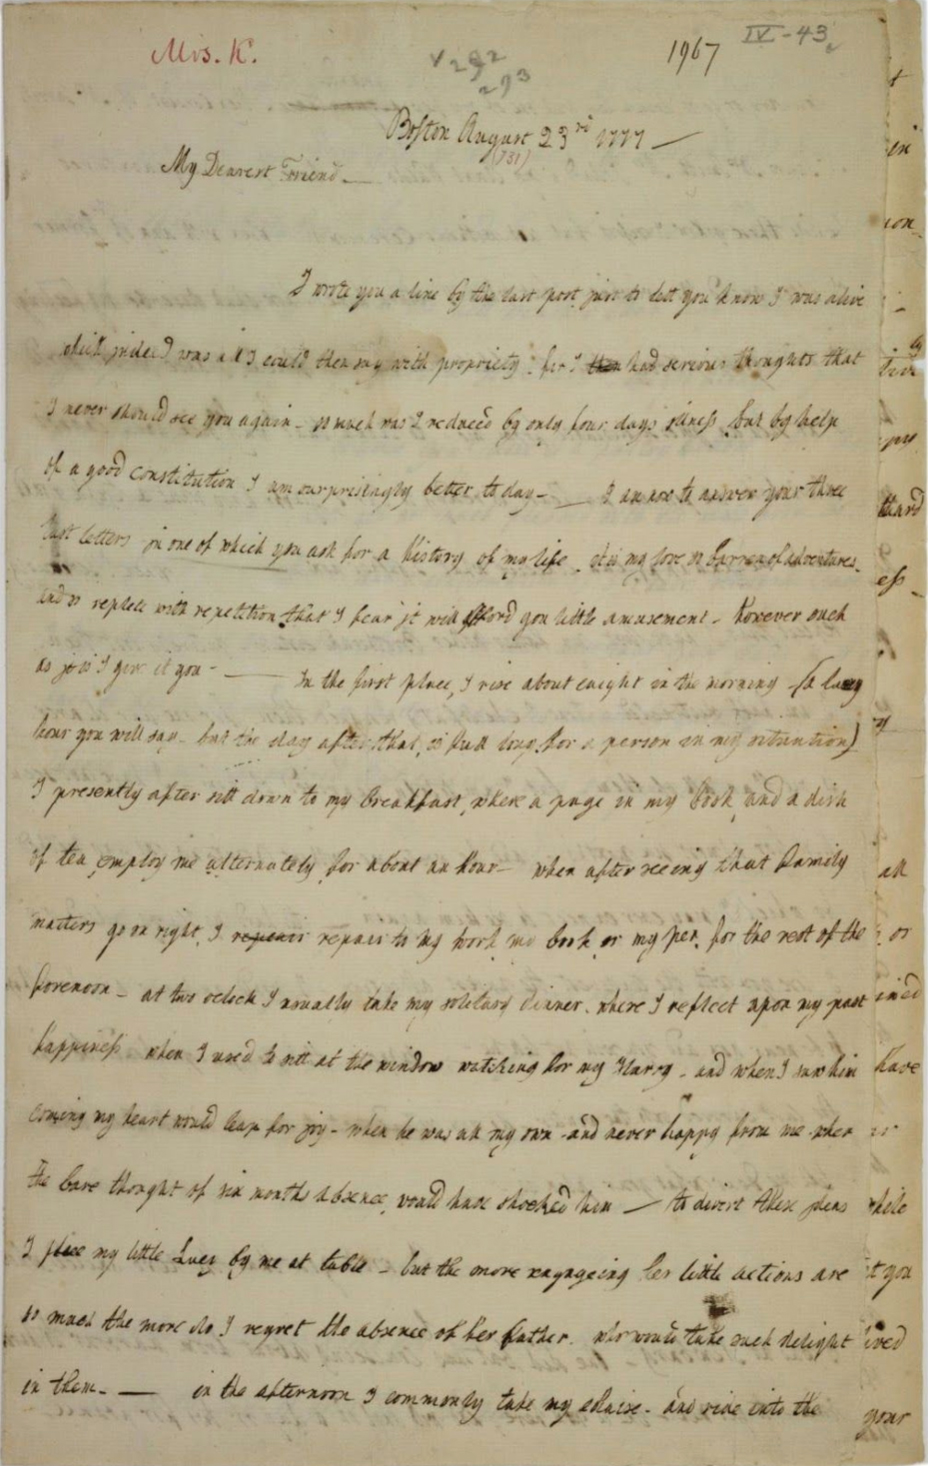 Mrs. K.
V 292
293
1967
IV-43
Boston August 23rd 1777 —
(731)
My Dearest Friend —
I wrote you a line by the last post just to lett you know I was alive
which indeed was all I could then say with propriety: for I then had serious thoughts that
I never should see you again - so much was I reduced by only four days illness but by help
of a good constitution I am surprisingly better to day - — I am now to answer your three
last letters in one of which you ask for a history of my life. it is my love so barren of adventures
and so replete with repetition that I fear it will afford you little amusement - however such
as it is I give it you - — In the first place, I rise about eaight in the morning (a late
hour you will say - but the day after that is full long for a person in my situation)
I presently after sitt down to my breakfast, where a page in my book and a dish
of tea employ me alternately for about an hour - when after seeing that family
matters go on right, I repair repair to my work my book or my pen for the rest of the
forenoon - at two oclock I usually take my solitary dinner where I reflect upon my past
happiness when I used to sitt at the window watching for my Harry - and when I saw him
coming my heart would leap for joy - when he was all my own and never happy from me when
the bare thought of six months absence would have shocked him — to divert these ideas
I place my little Lucy by me at table - but the more engageing her little actions are
so much the more do I regret the absence of her father who would take such delight
in them - — in the afternoon I commonly take my chaise - and ride into the
in
tion
hard
ess
all
or
have
while
it you
your